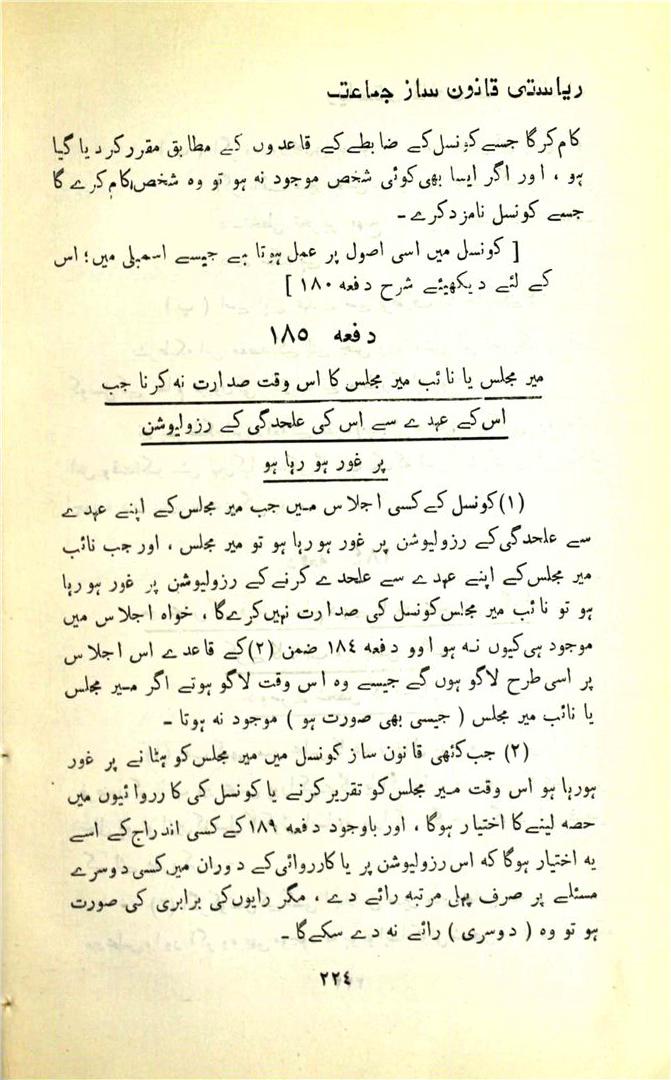 ریاستی قانون ساز جماعت
کام کرگا جسے کونسل کے ضابطے کے قاعدوں کے مطابق مقرر کر دیا گیا
ہو ، اور اگر ایسا بھی کوئی شخص موجود نہ ہو تو وہ شخص کام کرے گا
جسے کونسل نامزد کرے ۔
[ کونسل میں اسی اصول پر عمل ہوتا ہے جیسے اسمبلی میں ؛ اس
کے لئے دیکھیئے شرح دفعہ ۱۸۰ ]
دفعہ ۱۸۵
میر مجلس یا نائب میر مجلس کا اس وقت صدارت نہ کرنا جب
اس کے عہدے سے اس کی علحدگی کے رزولیوشن
پر غور ہو رہا ہو
(۱) کونسل کے کسی اجلاس میں جب میر مجلس کے اپنے عہدے
سے علحدگی کے رزولیوشن پر غور ہو رہا ہو تو میر مجلس ، اور جب نائب
میر مجلس کے اپنے عہدے سے علحدے کرنے کے رزولیوشن پر غور ہو رہا
ہو تو نائب میر مجلس کونسل کی صدارت نہیں کرے گا ، خواہ اجلاس میں
موجود ہی کیوں نہ ہو اوو دفعہ ۱۸۴ ضمن (۲) کے قاعدے اس اجلاس
پر اسی طرح لاگو ہوں گے جیسے وہ اس وقت لاگو ہوتے اگر میر مجلس
یا نائب میر مجلس ( جیسی بھی صورت ہو ) موجود نہ ہوتا ۔
(۲) جب کئھی قانون ساز کونسل میں میر مجلس کو ہٹانے پر غور
ہورہا ہو اس وقت میر مجلس کو تقریر کرنے یا کونسل کی کارروائیوں میں
حصہ لینے کا اختیار ہوگا ، اور باوجود دفعہ ۱۸۹ کے کسی اندراج کے اسے
یہ اختیار ہوگا کہ اس رزولیوشن پر یا کارروائی کے دوران میں کسی دوسرے
مسئلے پر صرف پہلی مرتبہ رائے دے ، مگر رایوں کی برابری کی صورت
ہو تو وہ ( دوسری ) رائے نہ دے سکے گا ۔
۲۲٤